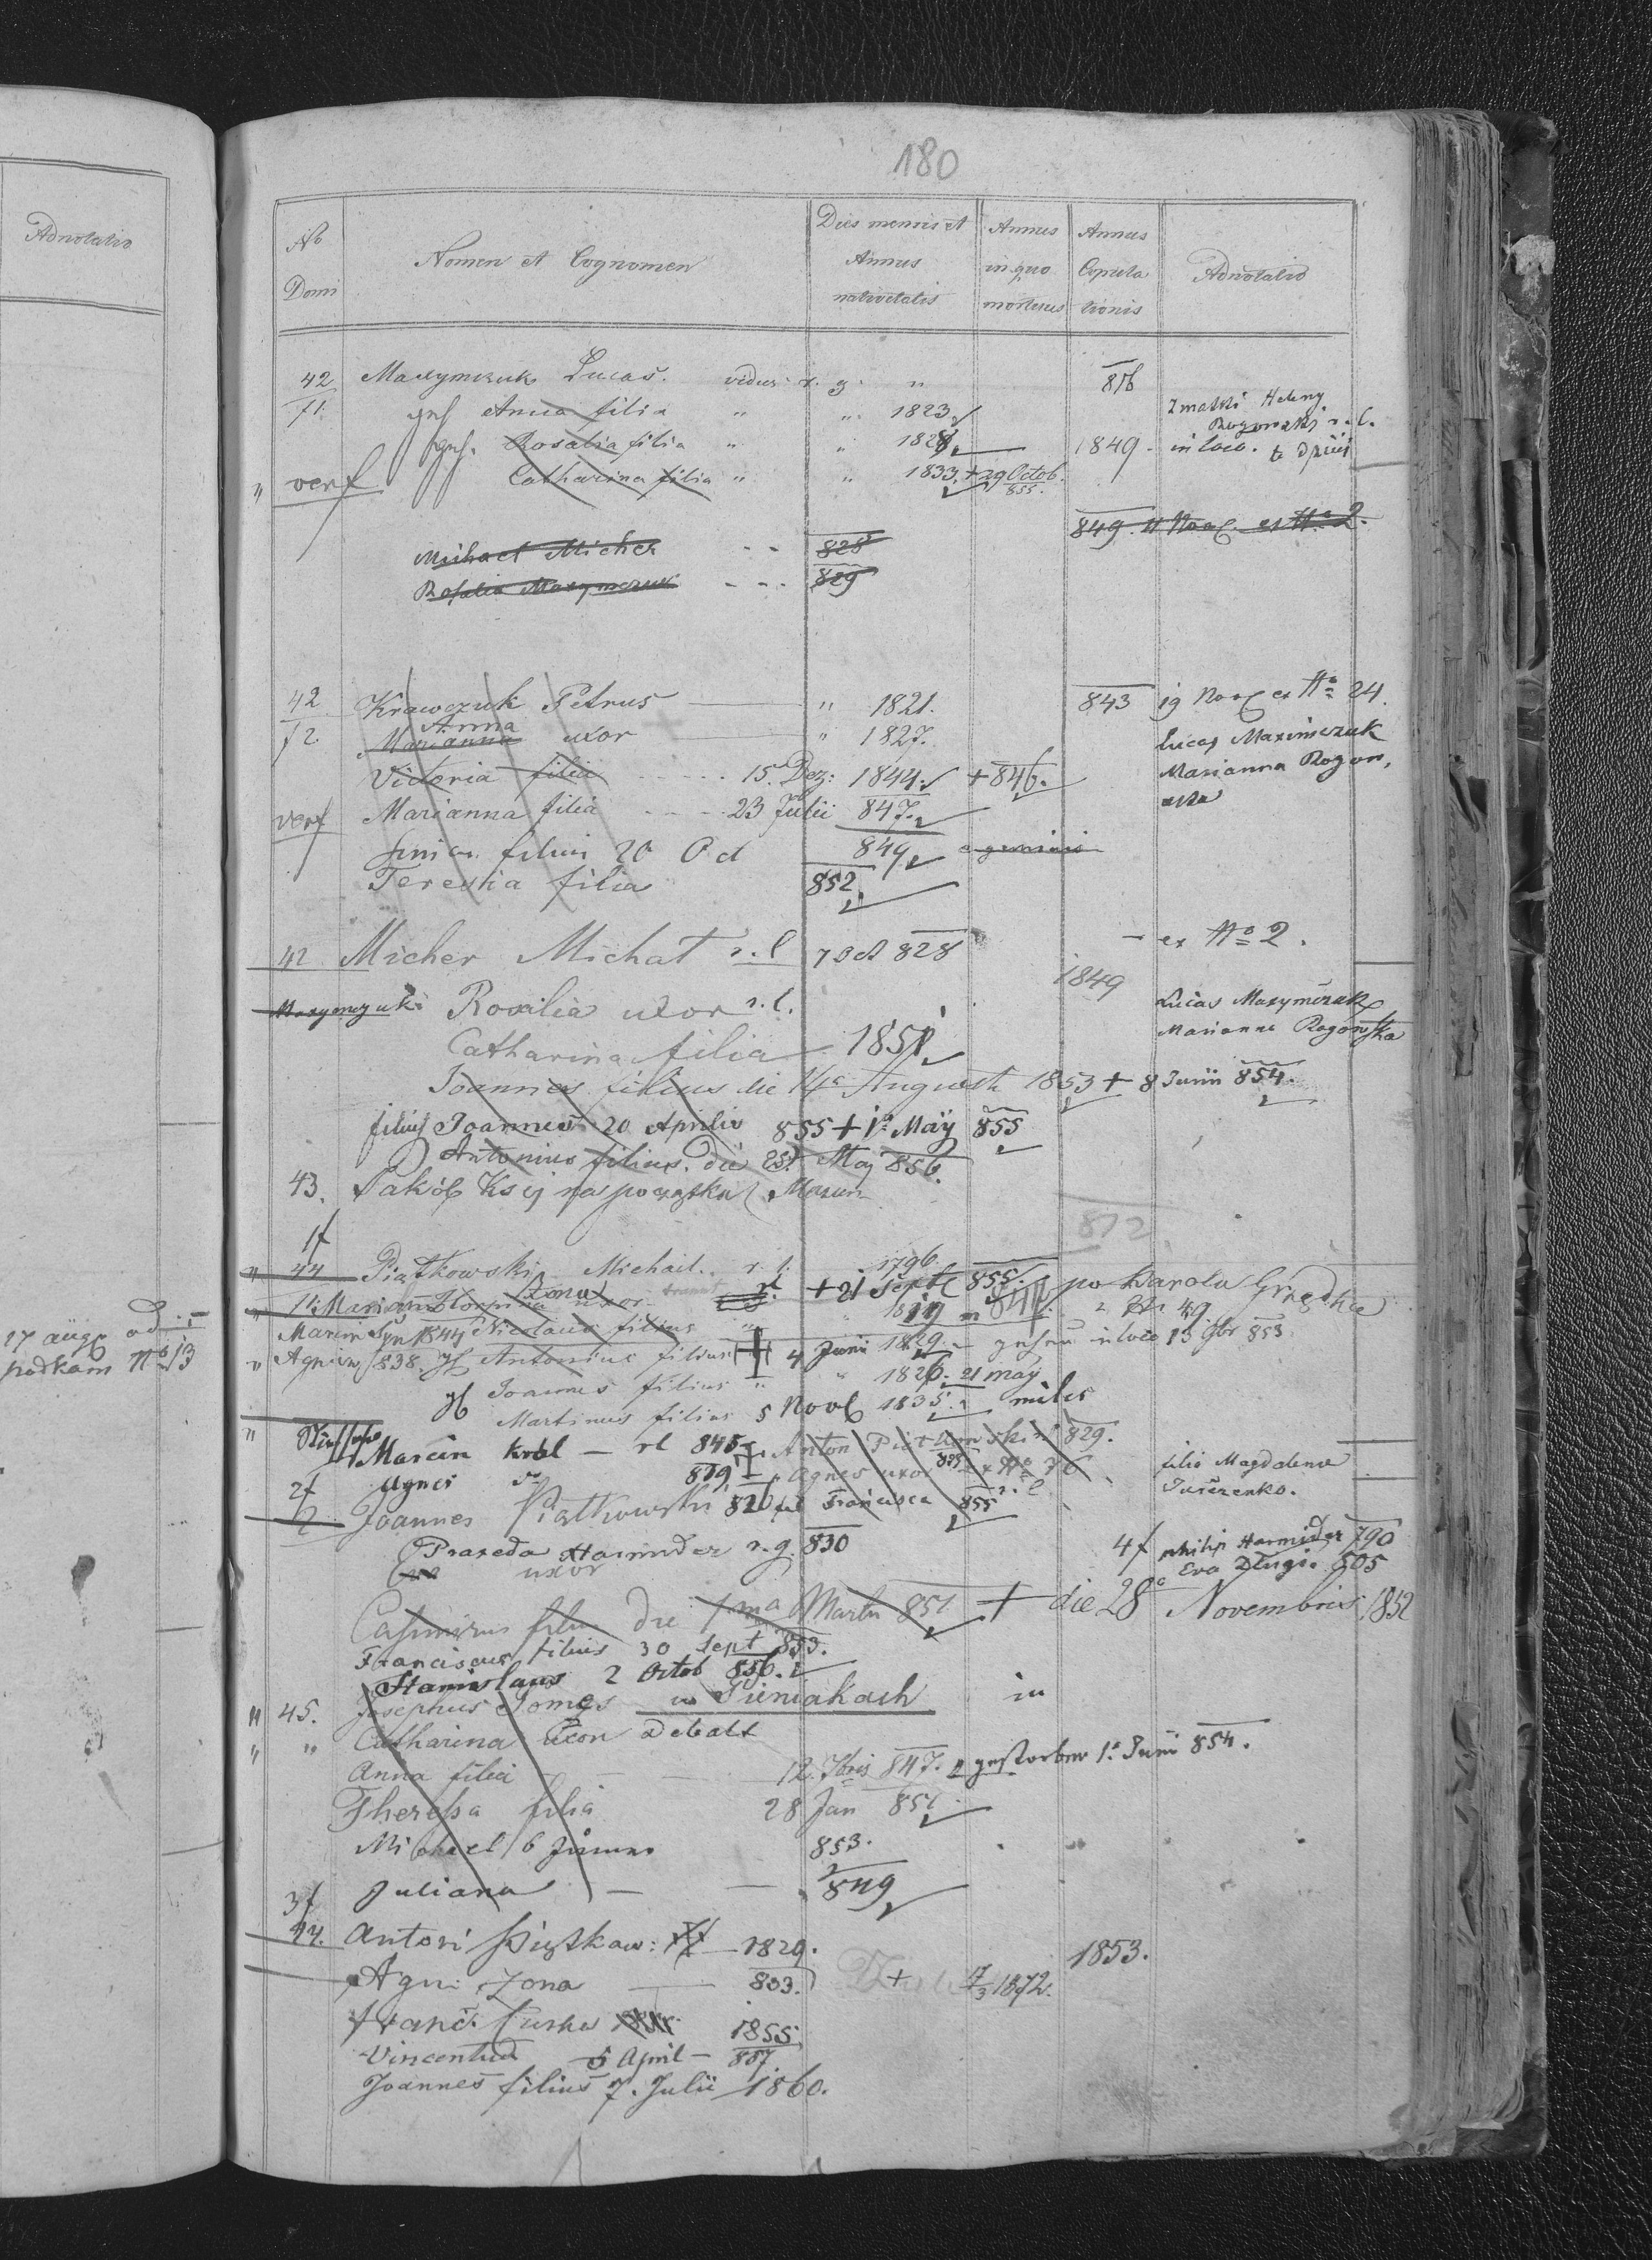 180
Adnotatio
No Domi
Nomen et Cognomen
Dies mensis et Annus nativitatis
Annus in quo mortuus
Annus Copulationis
Adnotatio
42 Maxymczuk Lucas. viduus r. g. " 816
f1. Anna filia " " 1823
Z matki Heleny
Rogowski r. l.
Rosalia filia " " 1828 1849. in loco.
" verf Catharina filia " " 1833. + 29 Octob. 855.
849. 11 Nov. ex No 2.
Michael Micher - - 828
Rosalia Maxymczuk - - - 829
42 Krawczuk Petrus " 1821. 843 19 Nov ex No 24.
f2. Marianna Anna uxor " 1827. Lucas Maximczuk
Victoria filia 15. Dez: 1844. + 846. Marianna Rogow,
verf Marianna filia 23 Julii 847. ska
filius 20 Oct 849 e geminis
Teresia filia 852
42 Micher Michał r. l 7 Oct 828 - ex No 2.
1849
Maxymczuk Rosalia uxor r. l. Lucas Maxymczuk
Marianna Rogowska
Catharina filia 1851
Joannes filius die 14a Augusti 1853 + 8 Junii 854.
filius Joannes 20 Aprilis 855 + 1a May 855
Antonius filius. die 25t Maj 856.
43. Jakób Ksiij na początku Mazur
1f 872
" 44 Piątkowski Michail. r. l. 1796.
+ 21 Septb 855. po Karola
Marianna uxor " No 49
Marcin Syn 1844 Nicolaus filius
" Agniew 838. Antonius filius 4 Junii 1829 in loco 13 9br 853.
Joannes filius " " 1826. 21 May
Martinus filius 5 Novb 1835. miles
" Marcin Król - rl 845 Anton Piątkowski 829.
2f Agnes 819 Agnes uxor 835 ex No 76 filia Magdalena
Joannes Piątkowski 826 fil Francisca 855 r. l.
Praxeda Harmider r. g. 830 4f philip Harmider 790
uxor Eva Długi 805
Casimirus filius die 1ma Martii 851 + die 28a Novembris 1852
Franciscus filius 30 Sept 853.
Stanislaus 2 Octob 856.
" 45. Josephus Tomgs w Pieniakach in
" " Catharina uxor Debalt
Anna filia 12. 7bris 847. gestorben 1a Juni 854.
Theressa filia 28 Jan 851.
Michael 6 853.
Juliana - - 849
3f
44. Antoni Piątkow: 1829. 1853.
Agni: żona 833. + 17/3 1872.
Franc. Curka 1855
Vincentius 5 April - 857
Joannes filius 7. Julii 1860.
17 aug
podkam No 13